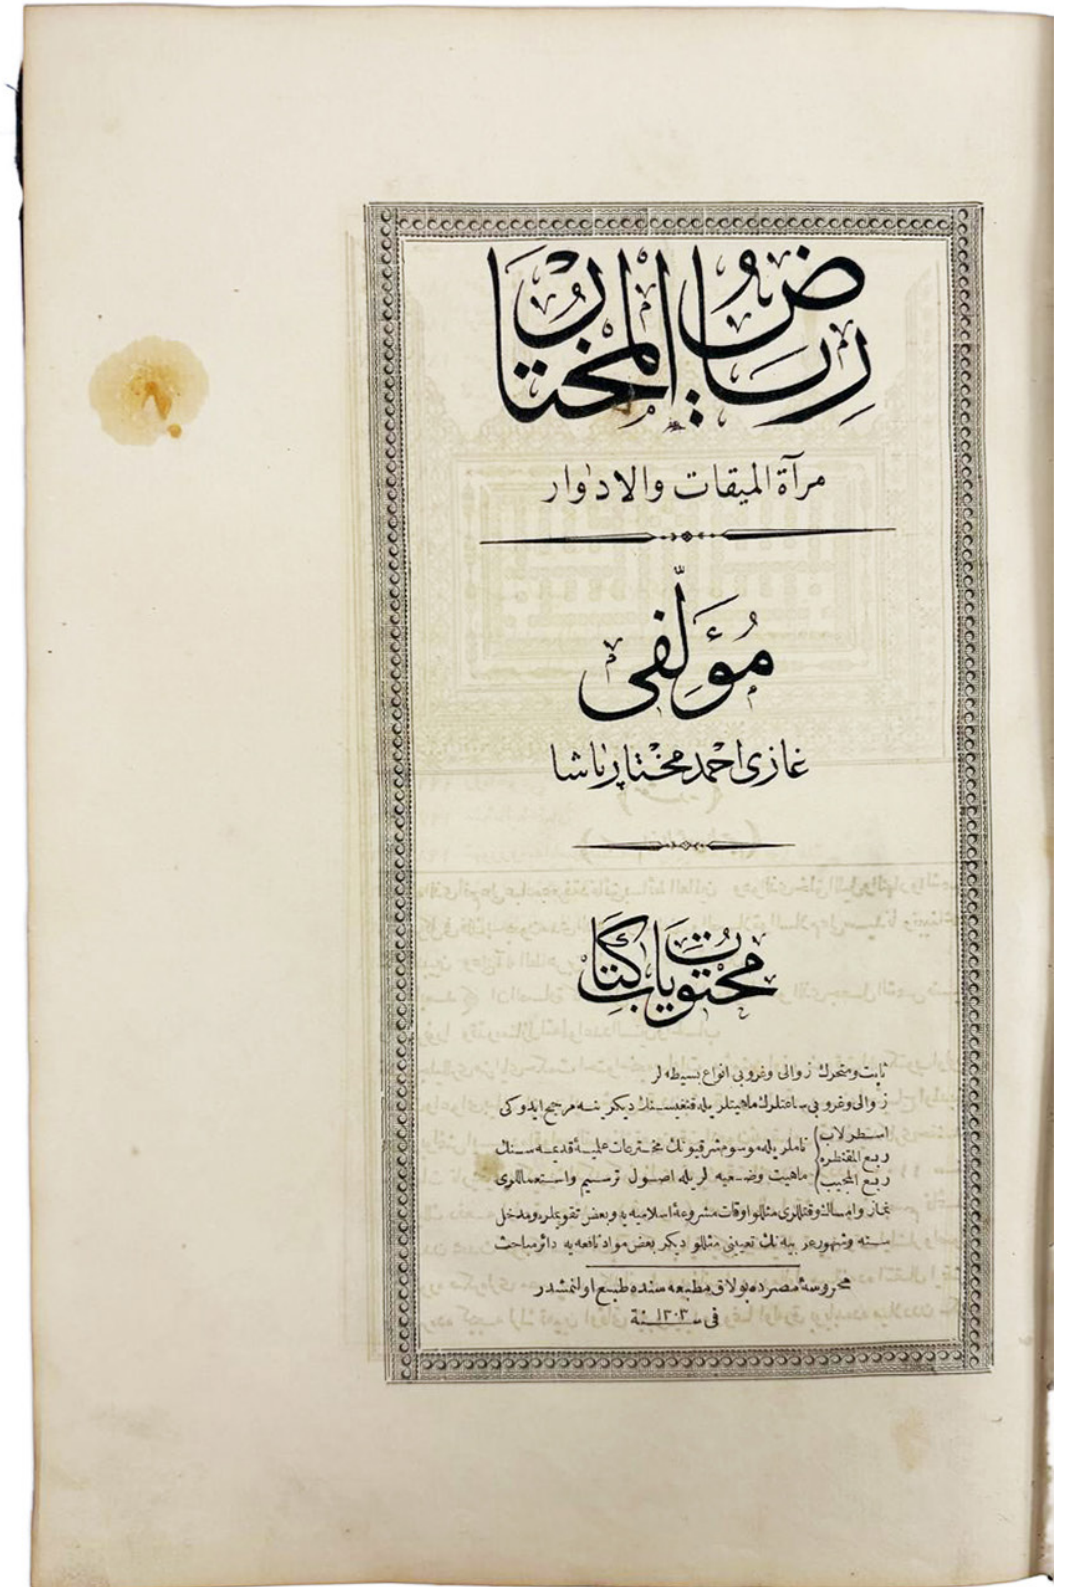 رِيَاضُ الْمُخْتَار
مرآة الميقات والادوار
مُؤَلِّفى
غازى احمد مختار پاشا
محتويات كتاب
ثابت ومتحرك زوالى وغروبى انواع بسيطه لر
زوالى وغروبى ساعتلرك ماهيتلريله قنغيسنك ديكرينه مرجح ايدوكى
اسطرلاب
ربع المقنطره
ربع المجيب
ناملريله موسوم شرقيونك مخترعات علميۀ قديمه سنك
ماهيت وضعيه لريله اصول ترسيم واستعماللرى
نماز وامساك وقتلرى مثللو اوقات مشروعۀ اسلاميه يه وبعض تقويملره ومدخل
سنه وشهور عربيه نك تعيينى مثللو ديكر بعض مواد نافعه يه دائر مباحث
محروسۀ مصرده بولاق مطبعه سنده طبع اولنمشدر
فى سنة ١٣٠٣